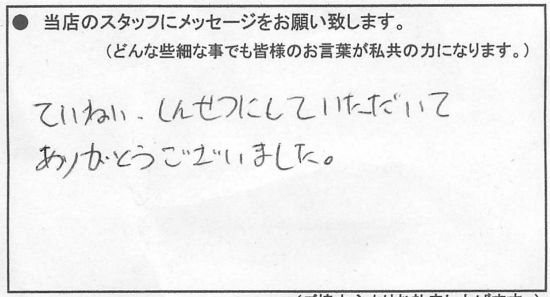 ● 当店のスタッフにメッセージをお願い致します。
(どんな些細な事でも皆様のお言葉が私共の力になります。)
ていねい、しんせつにしていただいて
ありがとうございました。